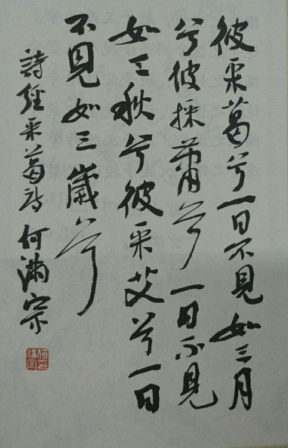 彼采葛兮一日不見如三月
兮彼採蕭兮一日不見
如三秋兮彼采艾兮一日
不見如三歲兮
詩經采葛詩何滿宗